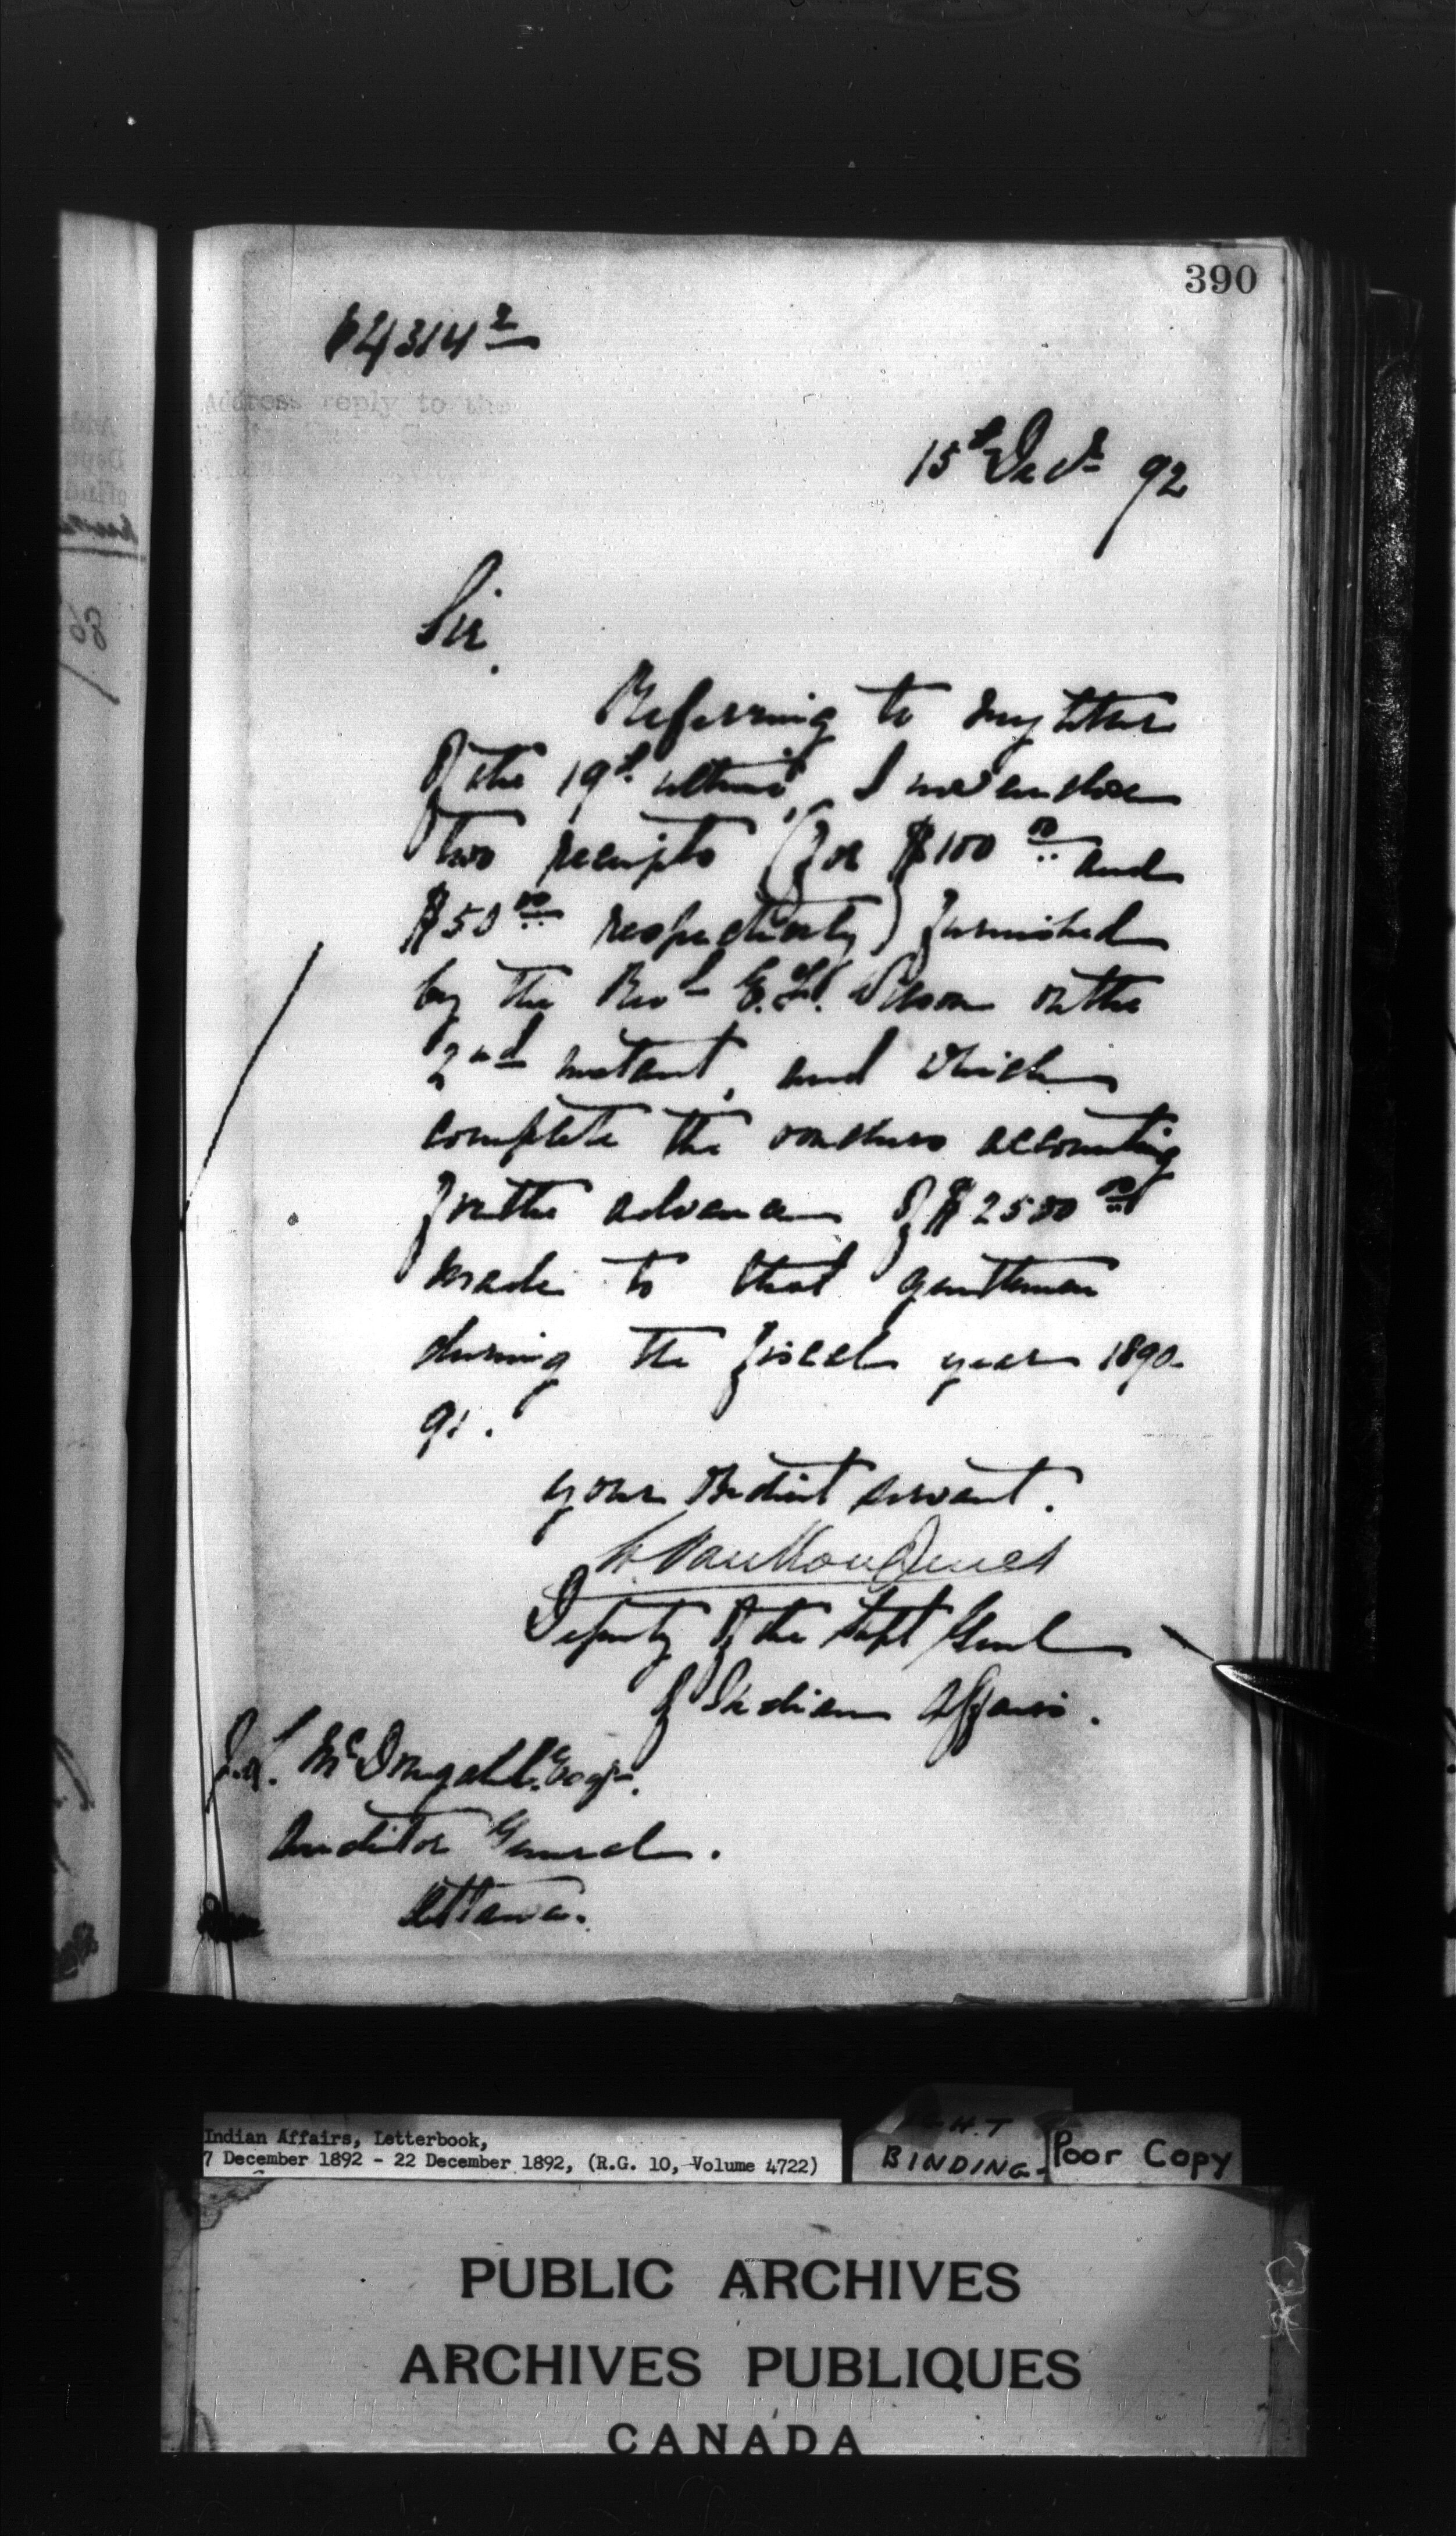 390
64314²
Address reply to the
15th Decr 92
Sir,
Referring to my letter
of the 19th ultimo, I now enclose
two receipts (for $100 00 and
$50 00 respectively) furnished
by the Revd E.F. Wilson on the
2nd instant, and which
complete the vouchers accounting
for the advance of $2500 00
made to that gentleman
during the fiscal year 1890-
91.
your obedient servant.
L. Vankoughnet
Deputy of the Supt Genl
of Indian Affairs.
J.L. McDougall, Esqr.
Auditor General.
Ottawa.
Indian Affairs, Letterbook,
7 December 1892 - 22 December 1892, (R.G. 10, Volume 4722)
BINDING-
Poor Copy
PUBLIC ARCHIVES
ARCHIVES PUBLIQUES
CANADA